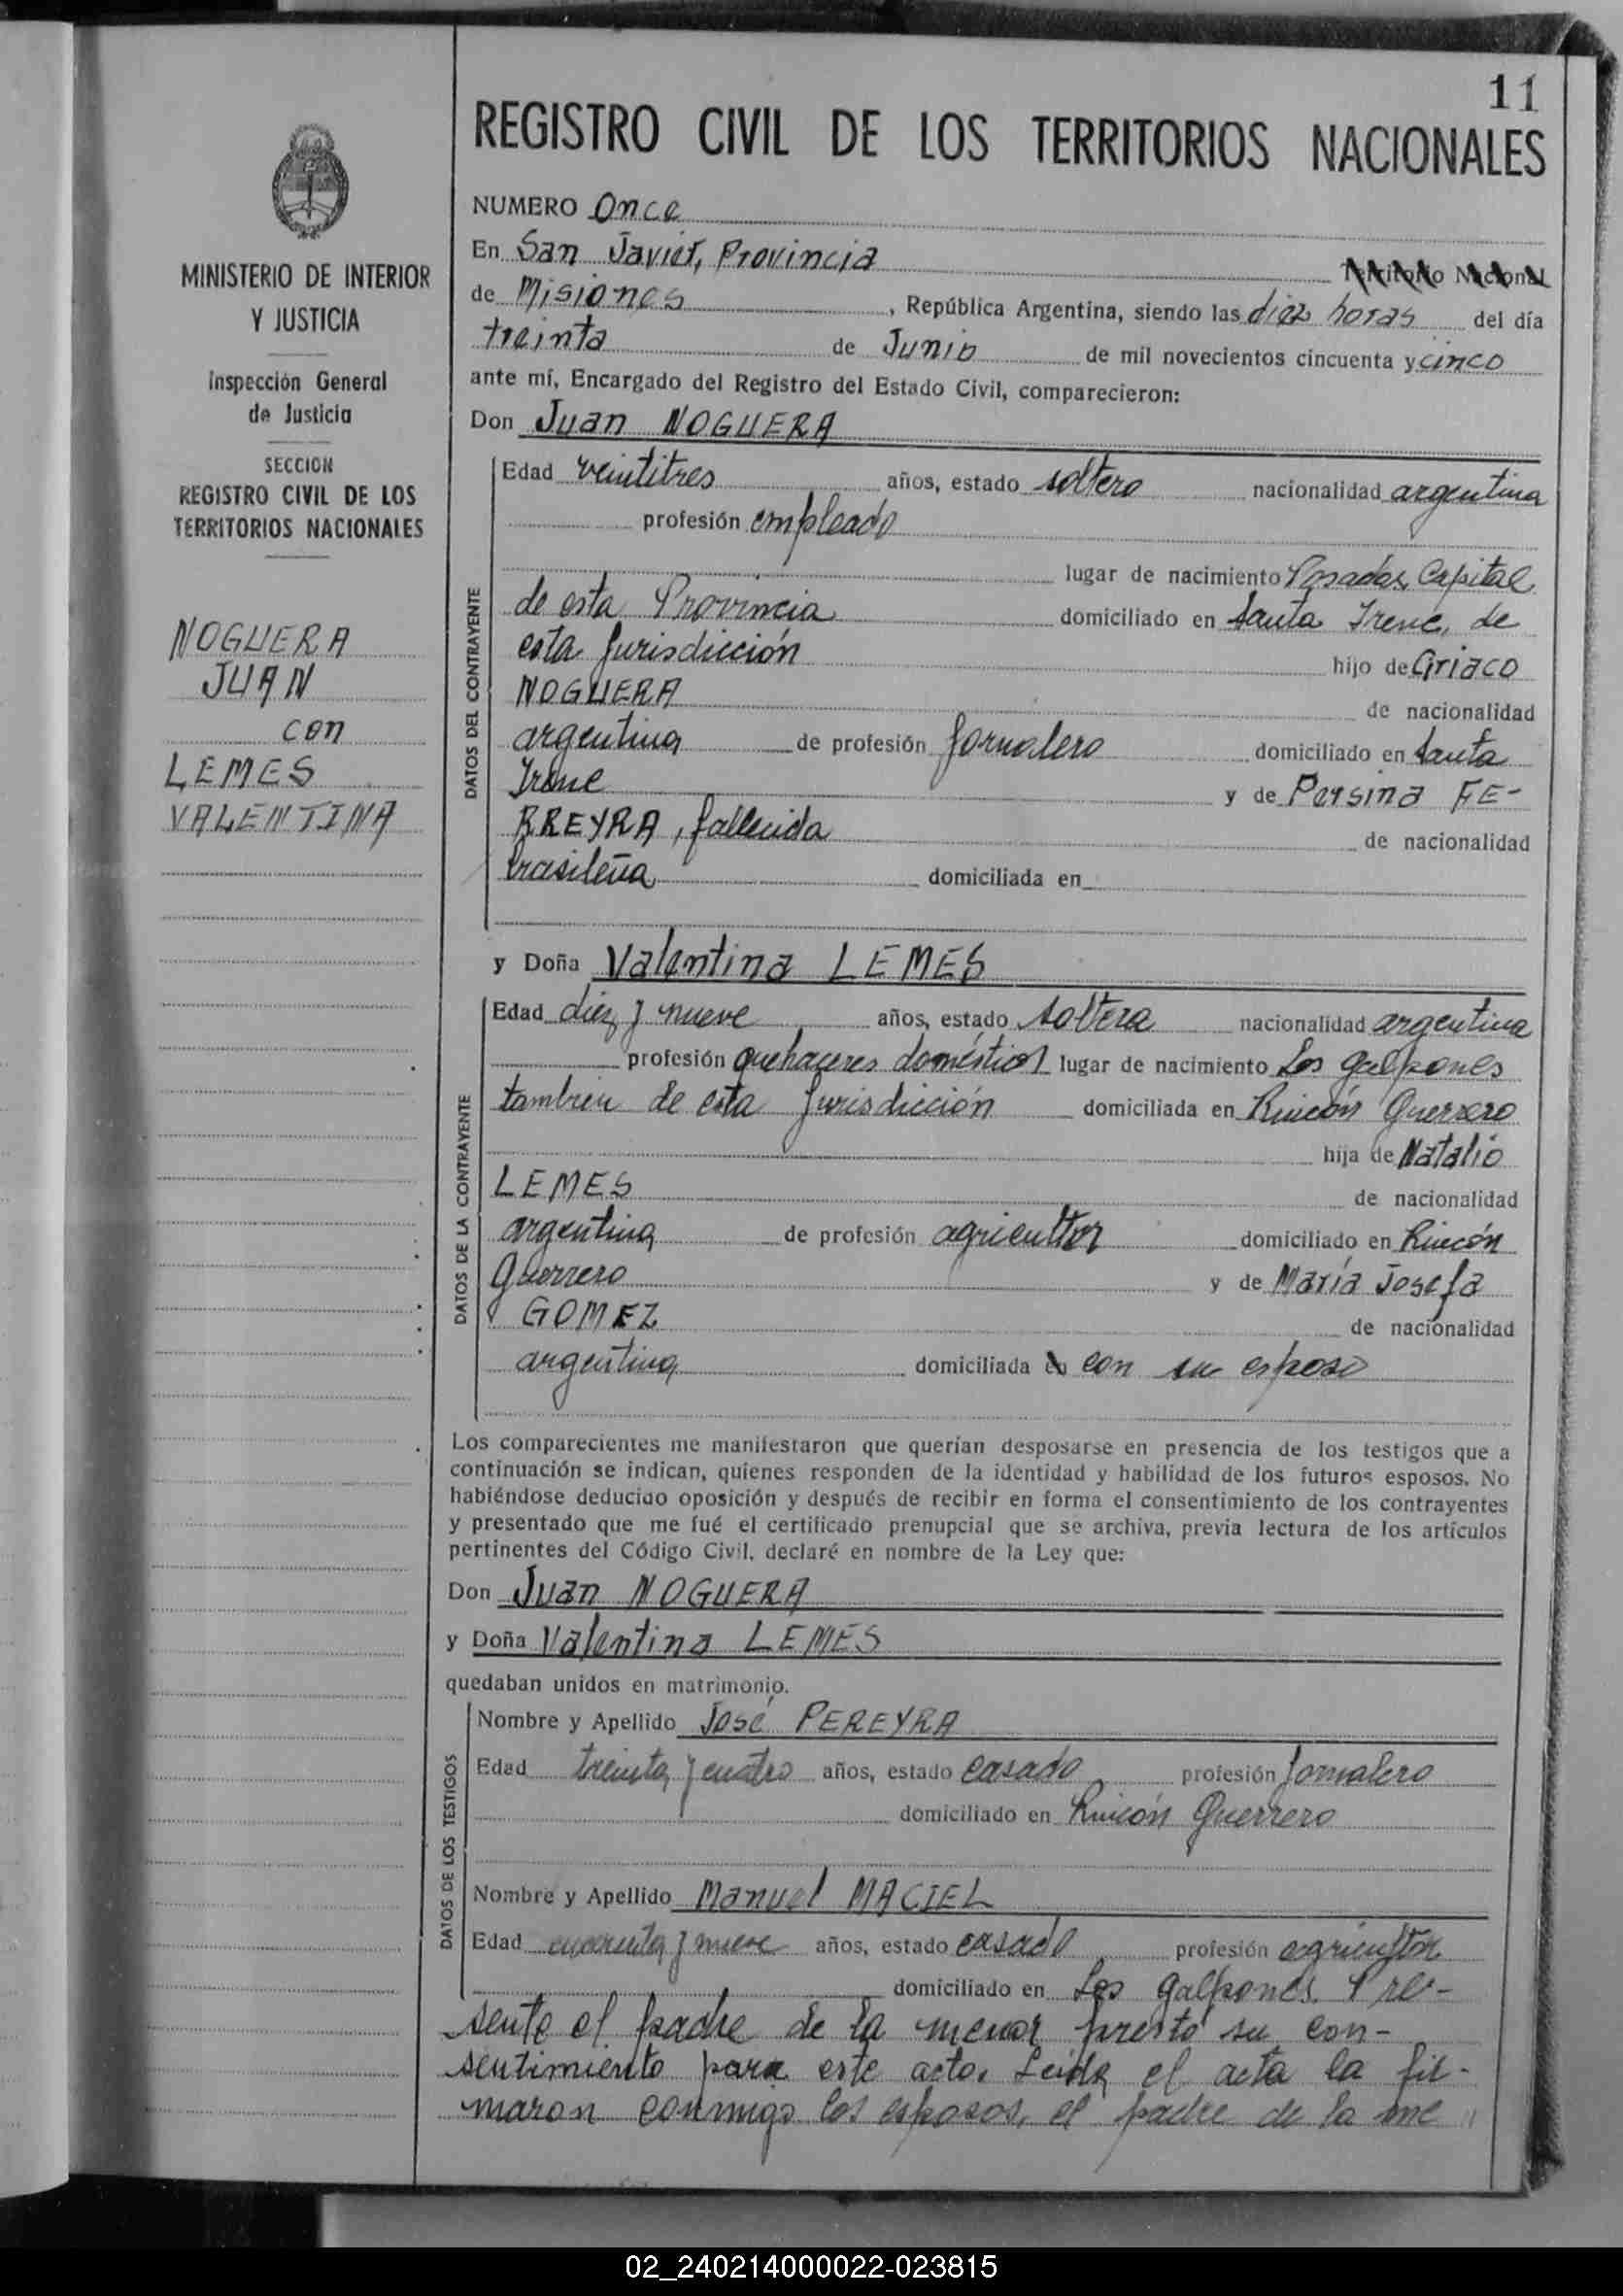 11
REGISTRO CIVIL DE LOS TERRITORIOS NACIONALES
MINISTERIO DE INTERIOR
Y JUSTICIA
Inspección General
de Justicia
SECCION
REGISTRO CIVIL DE LOS
TERRITORIOS NACIONALES
NOGUERA
JUAN
con
LEMES
VALENTINA
NUMERO Once
En San Javier, Provincia Territorio Nacional
de Misiones, República Argentina, siendo las diez horas del día
treinta de Junio de mil novecientos cincuenta y cinco
ante mí, Encargado del Registro del Estado Civil, comparecieron:
Don Juan NOGUERA
DATOS DEL CONTRAYENTE
Edad veintitres años, estado soltero nacionalidad argentina
profesión empleado
lugar de nacimiento Posadas, Capital
de esta Provincia domiciliado en Santa Irene, de
esta Jurisdicción hijo de Ciriaco
NOGUERA de nacionalidad
argentina de profesión Jornalero domiciliado en Santa
Irene y de Persina FE-
RREYRA, fallecida de nacionalidad
brasileña domiciliada en
y Doña Valentina LEMES
DATOS DE LA CONTRAYENTE
Edad diez y nueve años, estado soltera nacionalidad argentina
profesión quehaceres domésticos lugar de nacimiento Los galpones
tambien de esta Jurisdicción domiciliada en Rincón Guerrero
hija de Natalio
LEMES de nacionalidad
argentina de profesión agricultor domiciliado en Rincón
Guerrero y de María Josefa
GOMEZ de nacionalidad
argentina domiciliada en con su esposo
Los comparecientes me manifestaron que querían desposarse en presencia de los testigos que a
continuación se indican, quienes responden de la identidad y habilidad de los futuros esposos. No
habiéndose deducido oposición y después de recibir en forma el consentimiento de los contrayentes
y presentado que me fué el certificado prenupcial que se archiva, previa lectura de los artículos
pertinentes del Código Civil, declaré en nombre de la Ley que:
Don Juan NOGUERA
y Doña Valentina LEMES
quedaban unidos en matrimonio.
DATOS DE LOS TESTIGOS
Nombre y Apellido José PEREYRA
Edad treinta y cuatro años, estado casado profesión Jornalero
domiciliado en Rincón Guerrero
Nombre y Apellido Manuel MACIEL
Edad cuarenta y nueve años, estado casado profesión agricultor
domiciliado en Los galpones. Pre-
sente el padre de la menor prestó su con-
sentimiento para este acto. Leída el acta la fir-
maron conmigo los esposos, el padre de la me
02_240214000022-023815